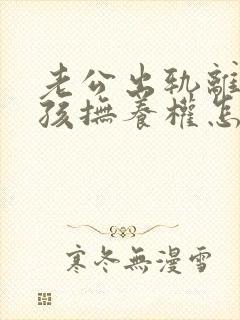 老公出轨離
孩撫養權怎
寒冬無漫雪